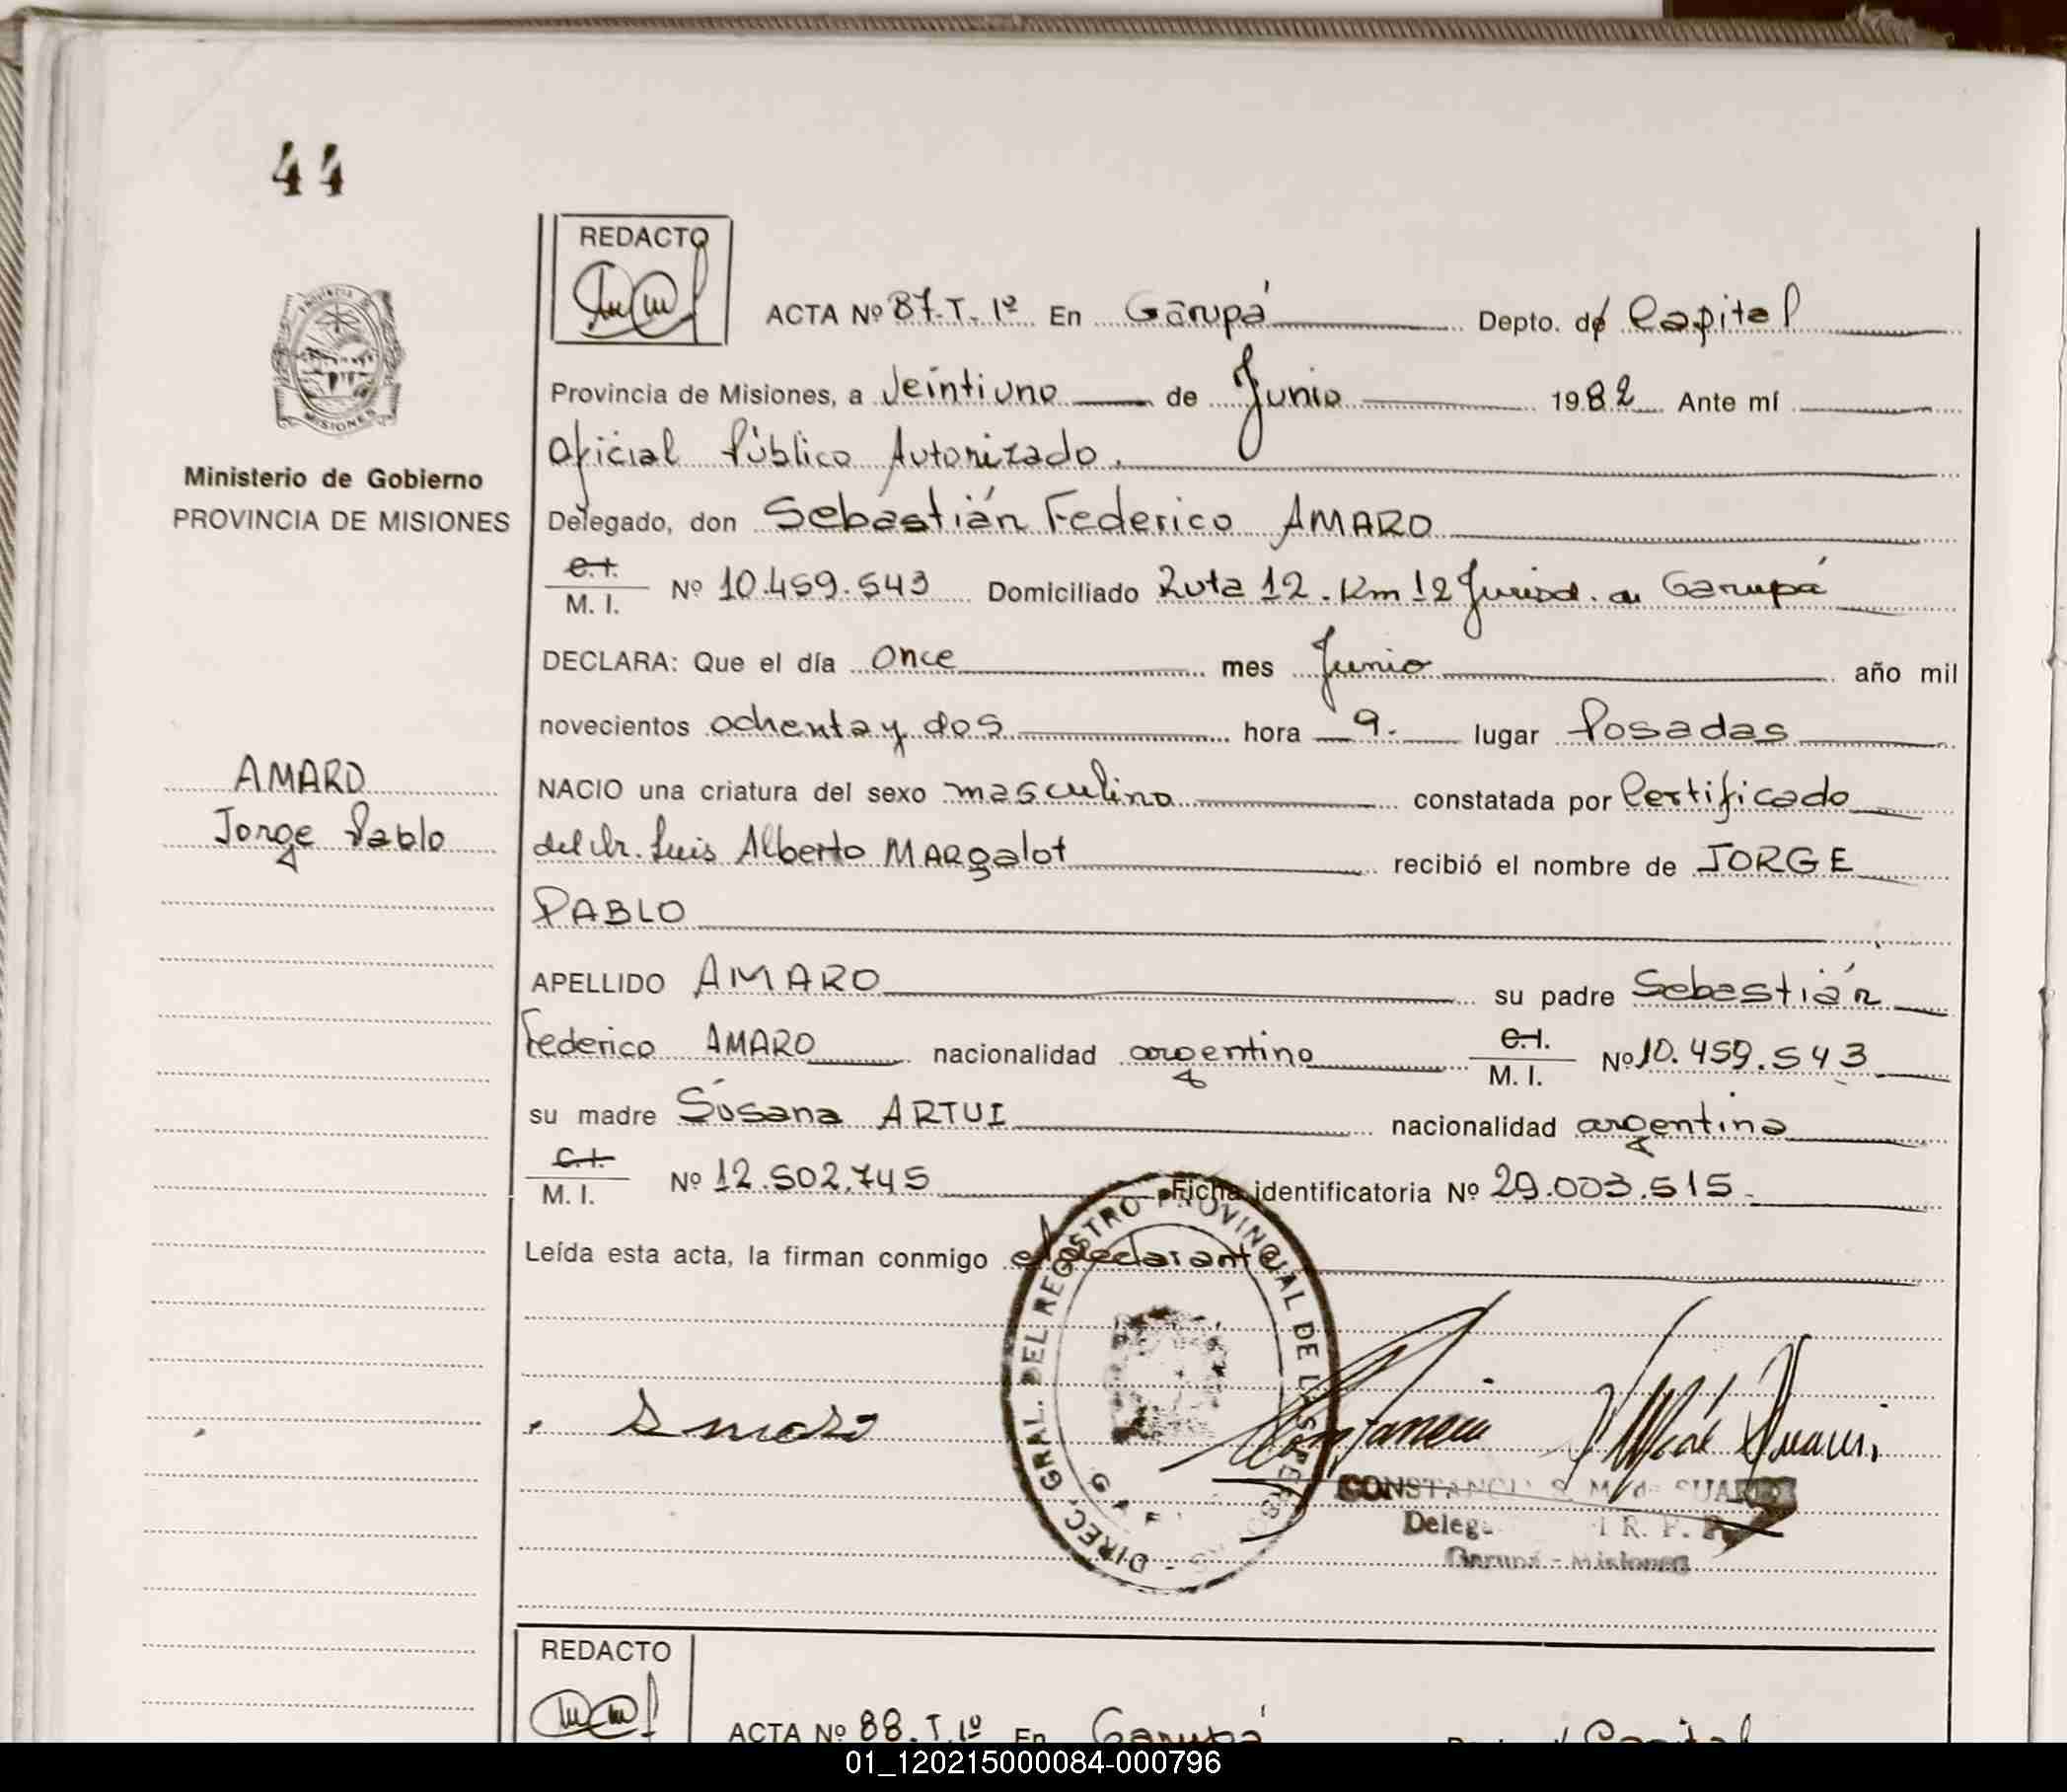 44
REDACTO
ACTA Nº 87.T.1º En Garupá Depto. de Capital
Provincia de Misiones, a Veintiuno de Junio 1982 Ante mí
Oficial Público Autorizado.
Ministerio de Gobierno
PROVINCIA DE MISIONES
Delegado, don Sebastián Federico AMARO
C.I.
M. I. Nº 10.459.543 Domiciliado Ruta 12. Km 12 Jurisd. de Garupá
DECLARA: Que el día once mes Junio año mil
novecientos ochenta y dos hora 9. lugar Posadas
AMARO
Jorge Pablo
NACIO una criatura del sexo masculino constatada por Certificado
del Dr. Luis Alberto MARgalot recibió el nombre de JORGE
PABLO
APELLIDO AMARO su padre Sebastián
Federico AMARO nacionalidad argentino C.I.
M. I. Nº 10.459.543
su madre Susana ARTUI nacionalidad argentina
C.I.
M. I. Nº 12.502.745 Ficha identificatoria Nº 29.003.515.
Leída esta acta, la firman conmigo el declarante
DIREC. GRAL. DEL REGISTRO PROVINCIAL DE LAS PERSONAS
CONSTANCIA S. M. de SUAREZ
Garupá - Misiones
REDACTO
ACTA Nº 88.T.1º En Garupá Capital
01_120215000084-000796